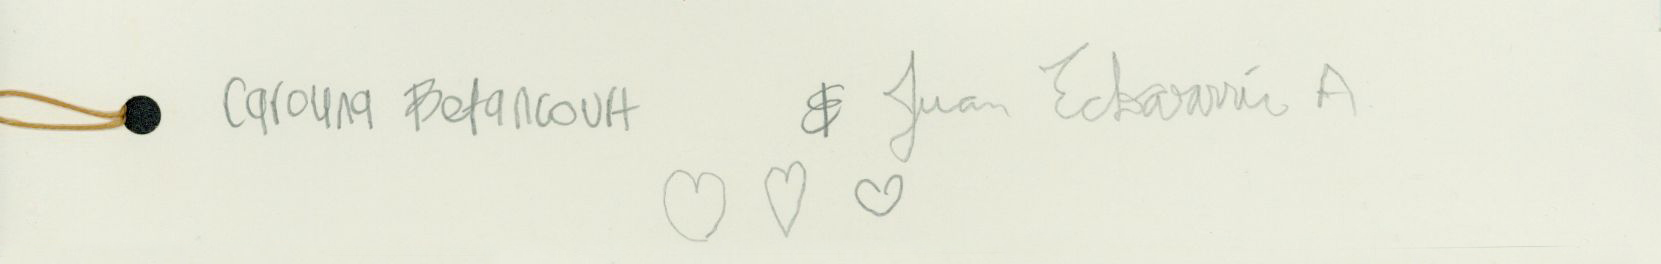 Carolina Betancourt & Juan Echavarría A.